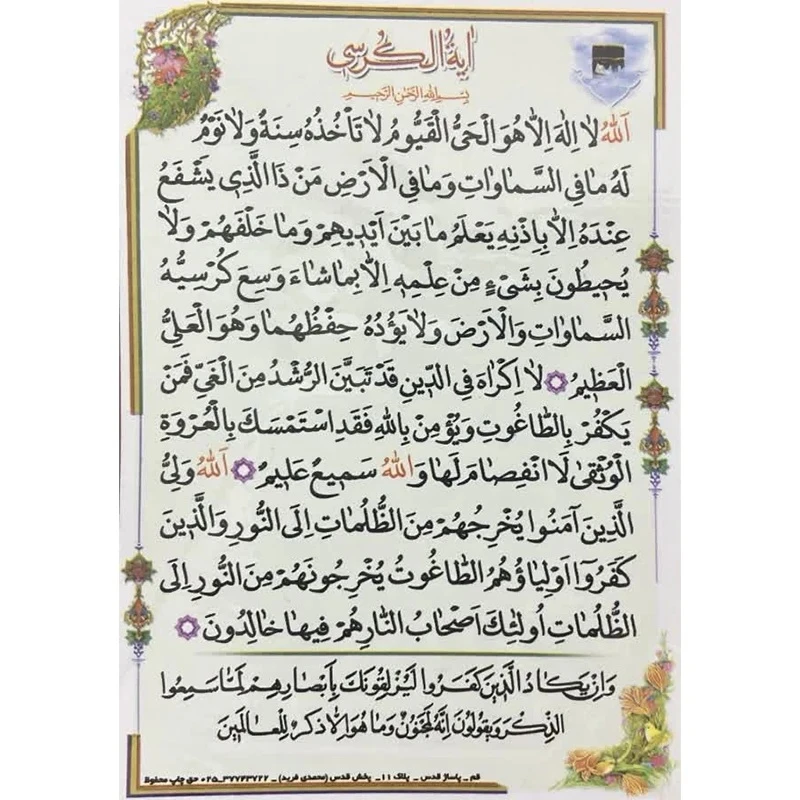 اٰیَةُ الْكُرسي
بِسْمِ اللهِ الرَّحْمٰنِ الرَّحِيمِ
اَللهُ لاٰ اِلٰهَ اِلاّٰ هُوَ الْحَيُّ الْقَيُّومُ لاٰ تَأْخُذُهُ سِنَةٌ وَلاٰ نَوْمٌ
لَهُ مٰا فِي السَّمٰاوٰاتِ وَمٰا فِي الْاَرْضِ مَنْ ذَا الَّذِي يَشْفَعُ
عِنْدَهُ اِلاّٰ بِاِذْنِهِ يَعْلَمُ مٰا بَيْنَ اَيْدِيهِمْ وَمٰا خَلْفَهُمْ وَلاٰ
يُحِيطُونَ بِشَيْءٍ مِنْ عِلْمِهِ اِلاّٰ بِمٰا شٰاءَ وَسِعَ كُرْسِيُّهُ
السَّمٰاوٰاتِ وَالْاَرْضَ وَلاٰ يَؤُدُهُ حِفْظُهُمٰا وَهُوَ الْعَلِيُّ
الْعَظِيمُ لاٰ اِكْرٰاهَ فِي الدِّينِ قَدْ تَبَيَّنَ الرُّشْدُ مِنَ الْغَيِّ فَمَنْ
يَكْفُرْ بِالطّٰاغُوتِ وَيُؤْمِنْ بِاللهِ فَقَدِ اسْتَمْسَكَ بِالْعُرْوَةِ
الْوُثْقىٰ لاَ انْفِصٰامَ لَهٰا وَاللهُ سَمِيعٌ عَلِيمٌ اَللهُ وَلِيُّ
الَّذِينَ آمَنُوا يُخْرِجُهُمْ مِنَ الظُّلُمٰاتِ اِلَى النُّورِ وَالَّذِينَ
كَفَرُوا اَوْلِيٰاؤُهُمُ الطّٰاغُوتُ يُخْرِجُونَهُمْ مِنَ النُّورِ اِلَى
الظُّلُمٰاتِ اُولٰئِكَ اَصْحٰابُ النّٰارِ هُمْ فِيهٰا خٰالِدُونَ
وَاِنْ يَكٰادُ الَّذِينَ كَفَرُوا لَيُزْلِقُونَكَ بِاَبْصٰارِهِمْ لَمّٰا سَمِعُوا
الذِّكْرَ وَيَقُولُونَ اِنَّهُ لَمَجْنُونٌ وَمٰا هُوَ اِلاّٰ ذِكْرٌ لِلْعٰالَمِينَ
قم ـ پاساژ قدس ـ پلاک ۱۱ـ پخش قدس (محمدی فرید) ـ ۳۷۷۴۳۷۲۲ـ۰۲۵ حق چاپ محفوظ